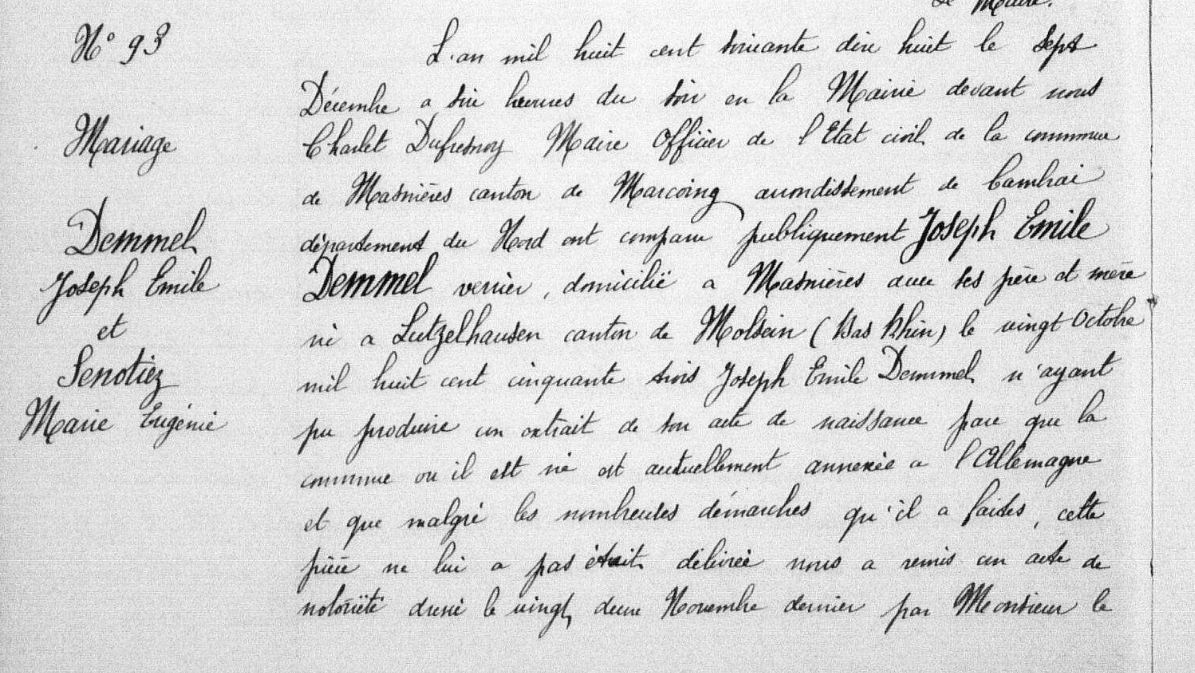 Le Maire.
N° 93
Mariage
Demmel
Joseph Emile
et
Senotiez
Marie Eugénie
L'an mil huit cent soixante dix huit le sept
Décembre a six heures du soir en la Mairie devant nous
Charlet Dufresnoy Maire Officier de l'Etat civil de la commune
de Masnières canton de Marcoing arrondissement de Cambrai
département du Nord ont comparu publiquement Joseph Emile
Demmel verrier, domicilié a Masnières avec ses père et mère
né a Lutzelhausen canton de Molsein (Bas Rhin) le vingt Octobre
mil huit cent cinquante trois Joseph Emile Demmel n'ayant
pu produire un extrait de son acte de naissance parce que la
commune ou il est né est actuellement annexée a l'Allemagne
et que malgré les nombreuses démarches qu'il a faites, cette
pièce ne lui a pas était délivrée nous a remis un acte de
notoriété dressé le vingt deux Novembre dernier par Monsieur le